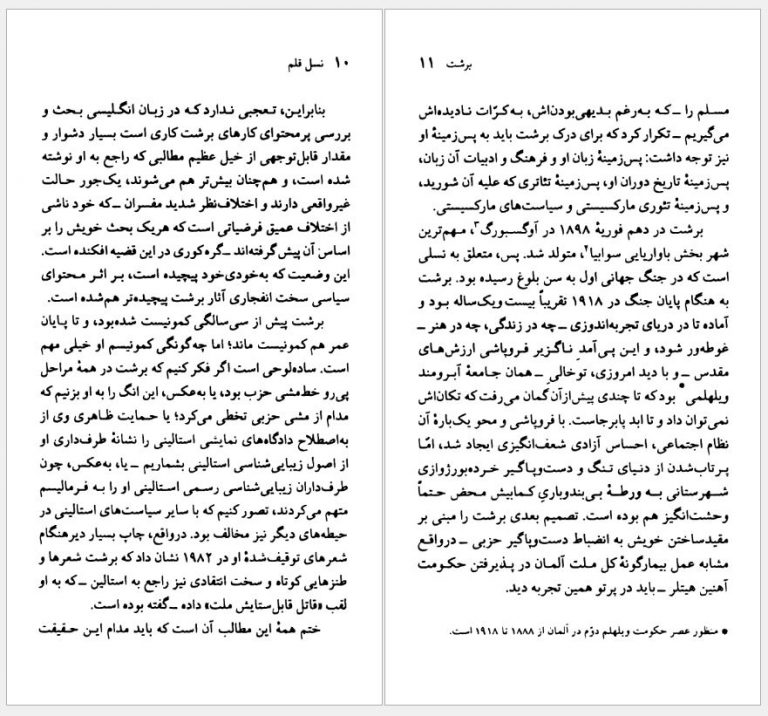 ۱۰ نسل قلم
بنابراین، تعجبی ندارد که در زبان انگلیسی بحث و
بررسی پرمحتوای کارهای برشت کاری است بسیار دشوار و
مقدار قابل‌توجهی از خیل عظیم مطالبی که راجع به او نوشته
شده است، و هم‌چنان بیش‌تر هم می‌شوند، یک‌جور حالت
غیرواقعی دارند و اختلاف‌نظر شدید مفسران ـ که خود ناشی
از اختلاف عمیق فرضیاتی است که هریک بحث خویش را بر
اساس آن پیش گرفته‌اند ـ گره کوری در این قضیه افکنده است.
این وضعیت که به‌خودی‌خود پیچیده است، بر اثر محتوای
سیاسی سخت انفجاری آثار برشت پیچیده‌تر هم‌شده است.
برشت پیش از سی‌سالگی کمونیست شده‌بود، و تا پایان
عمر هم کمونیست ماند؛ اما چه‌گونگی کمونیسم او خیلی مهم
است. ساده‌لوحی است اگر فکر کنیم که برشت در همهٔ مراحل
پی‌رو خط‌مشی حزب بود، یا به‌عکس، این انگ را به او بزنیم که
مدام از مشی حزبی تخطی می‌کرد؛ یا حمایت ظاهری وی از
به‌اصطلاح دادگاه‌های نمایشی استالینی را نشانهٔ طرف‌داری او
از اصول زیبایی‌شناسی استالینی بشماریم ـ یا، به‌عکس، چون
طرف‌داران زیبایی‌شناسی رسمی استالینی او را به فرمالیسم
متهم می‌کردند، تصور کنیم که با سایر سیاست‌های استالینی در
حیطه‌های دیگر نیز مخالف بود. درواقع، چاپ بسیار دیرهنگام
شعرهای توقیف‌شدهٔ او در ۱۹۸۲ نشان داد که برشت شعرها و
طنزهایی کوتاه و سخت انتقادی نیز راجع به استالین ـ که به او
لقب «قاتل قابل‌ستایش ملت» داده ـ گفته بوده است.
ختم همهٔ این مطالب آن است که باید مدام این حقیقت
برشت ۱۱
مسلم را ـ که به‌رغم بدیهی‌بودن‌اش، به‌کرّات نادیده‌اش
می‌گیریم ـ تکرار کرد که برای درک برشت باید به پس‌زمینهٔ او
نیز توجه داشت: پس‌زمینهٔ زبان او و فرهنگ و ادبیات آن زبان،
پس‌زمینهٔ تاریخ دوران او، پس‌زمینهٔ تئاتری که علیه آن شورید،
و پس‌زمینهٔ تئوری مارکسیستی و سیاست‌های مارکسیستی.
برشت در دهم فوریهٔ ۱۸۹۸ در آوگسبورگ۳، مهم‌ترین
شهر بخش باواریایی سوابیا۴، متولد شد. پس، متعلق به نسلی
است که در جنگ جهانی اول به سن بلوغ رسیده بود. برشت
به هنگام پایان جنگ در ۱۹۱۸ تقریباً بیست ویک‌ساله بود و
آماده تا در دریای تجربه‌اندوزی ـ چه در زندگی، چه در هنر ـ
غوطه‌ور شود، و این پی‌آمدِ ناگزیر فروپاشی ارزش‌های
مقدس ـ و با دید امروزی، توخالی ـ همان جامعهٔ آبرومند
ویلهلمی● بود که تا چندی پیش‌ازآن گمان می‌رفت که تکان‌اش
نمی‌توان داد و تا ابد پابرجاست. با فروپاشی و محو یک‌بارهٔ آن
نظام اجتماعی، احساس آزادی شعف‌انگیزی ایجاد شد، امّا
پرتاب‌شدن از دنیای تنگ و دست‌وپاگیر خرده‌بورژوازی
شهرستانی به ورطهٔ بی‌بندوباریِ کمابیش محض حتماً
وحشت‌انگیز هم بوده است. تصمیم بعدی برشت را مبنی بر
مقیدساختن خویش به انضباط دست‌وپاگیر حزبی ـ درواقع
مشابه عمل بیمارگونهٔ کل ملت آلمان در پذیرفتن حکومت
آهنین هیتلر ـ باید در پرتو همین تجربه دید.
● منظور عصر حکومت ویلهلم دوّم در آلمان از ۱۸۸۸ تا ۱۹۱۸ است.